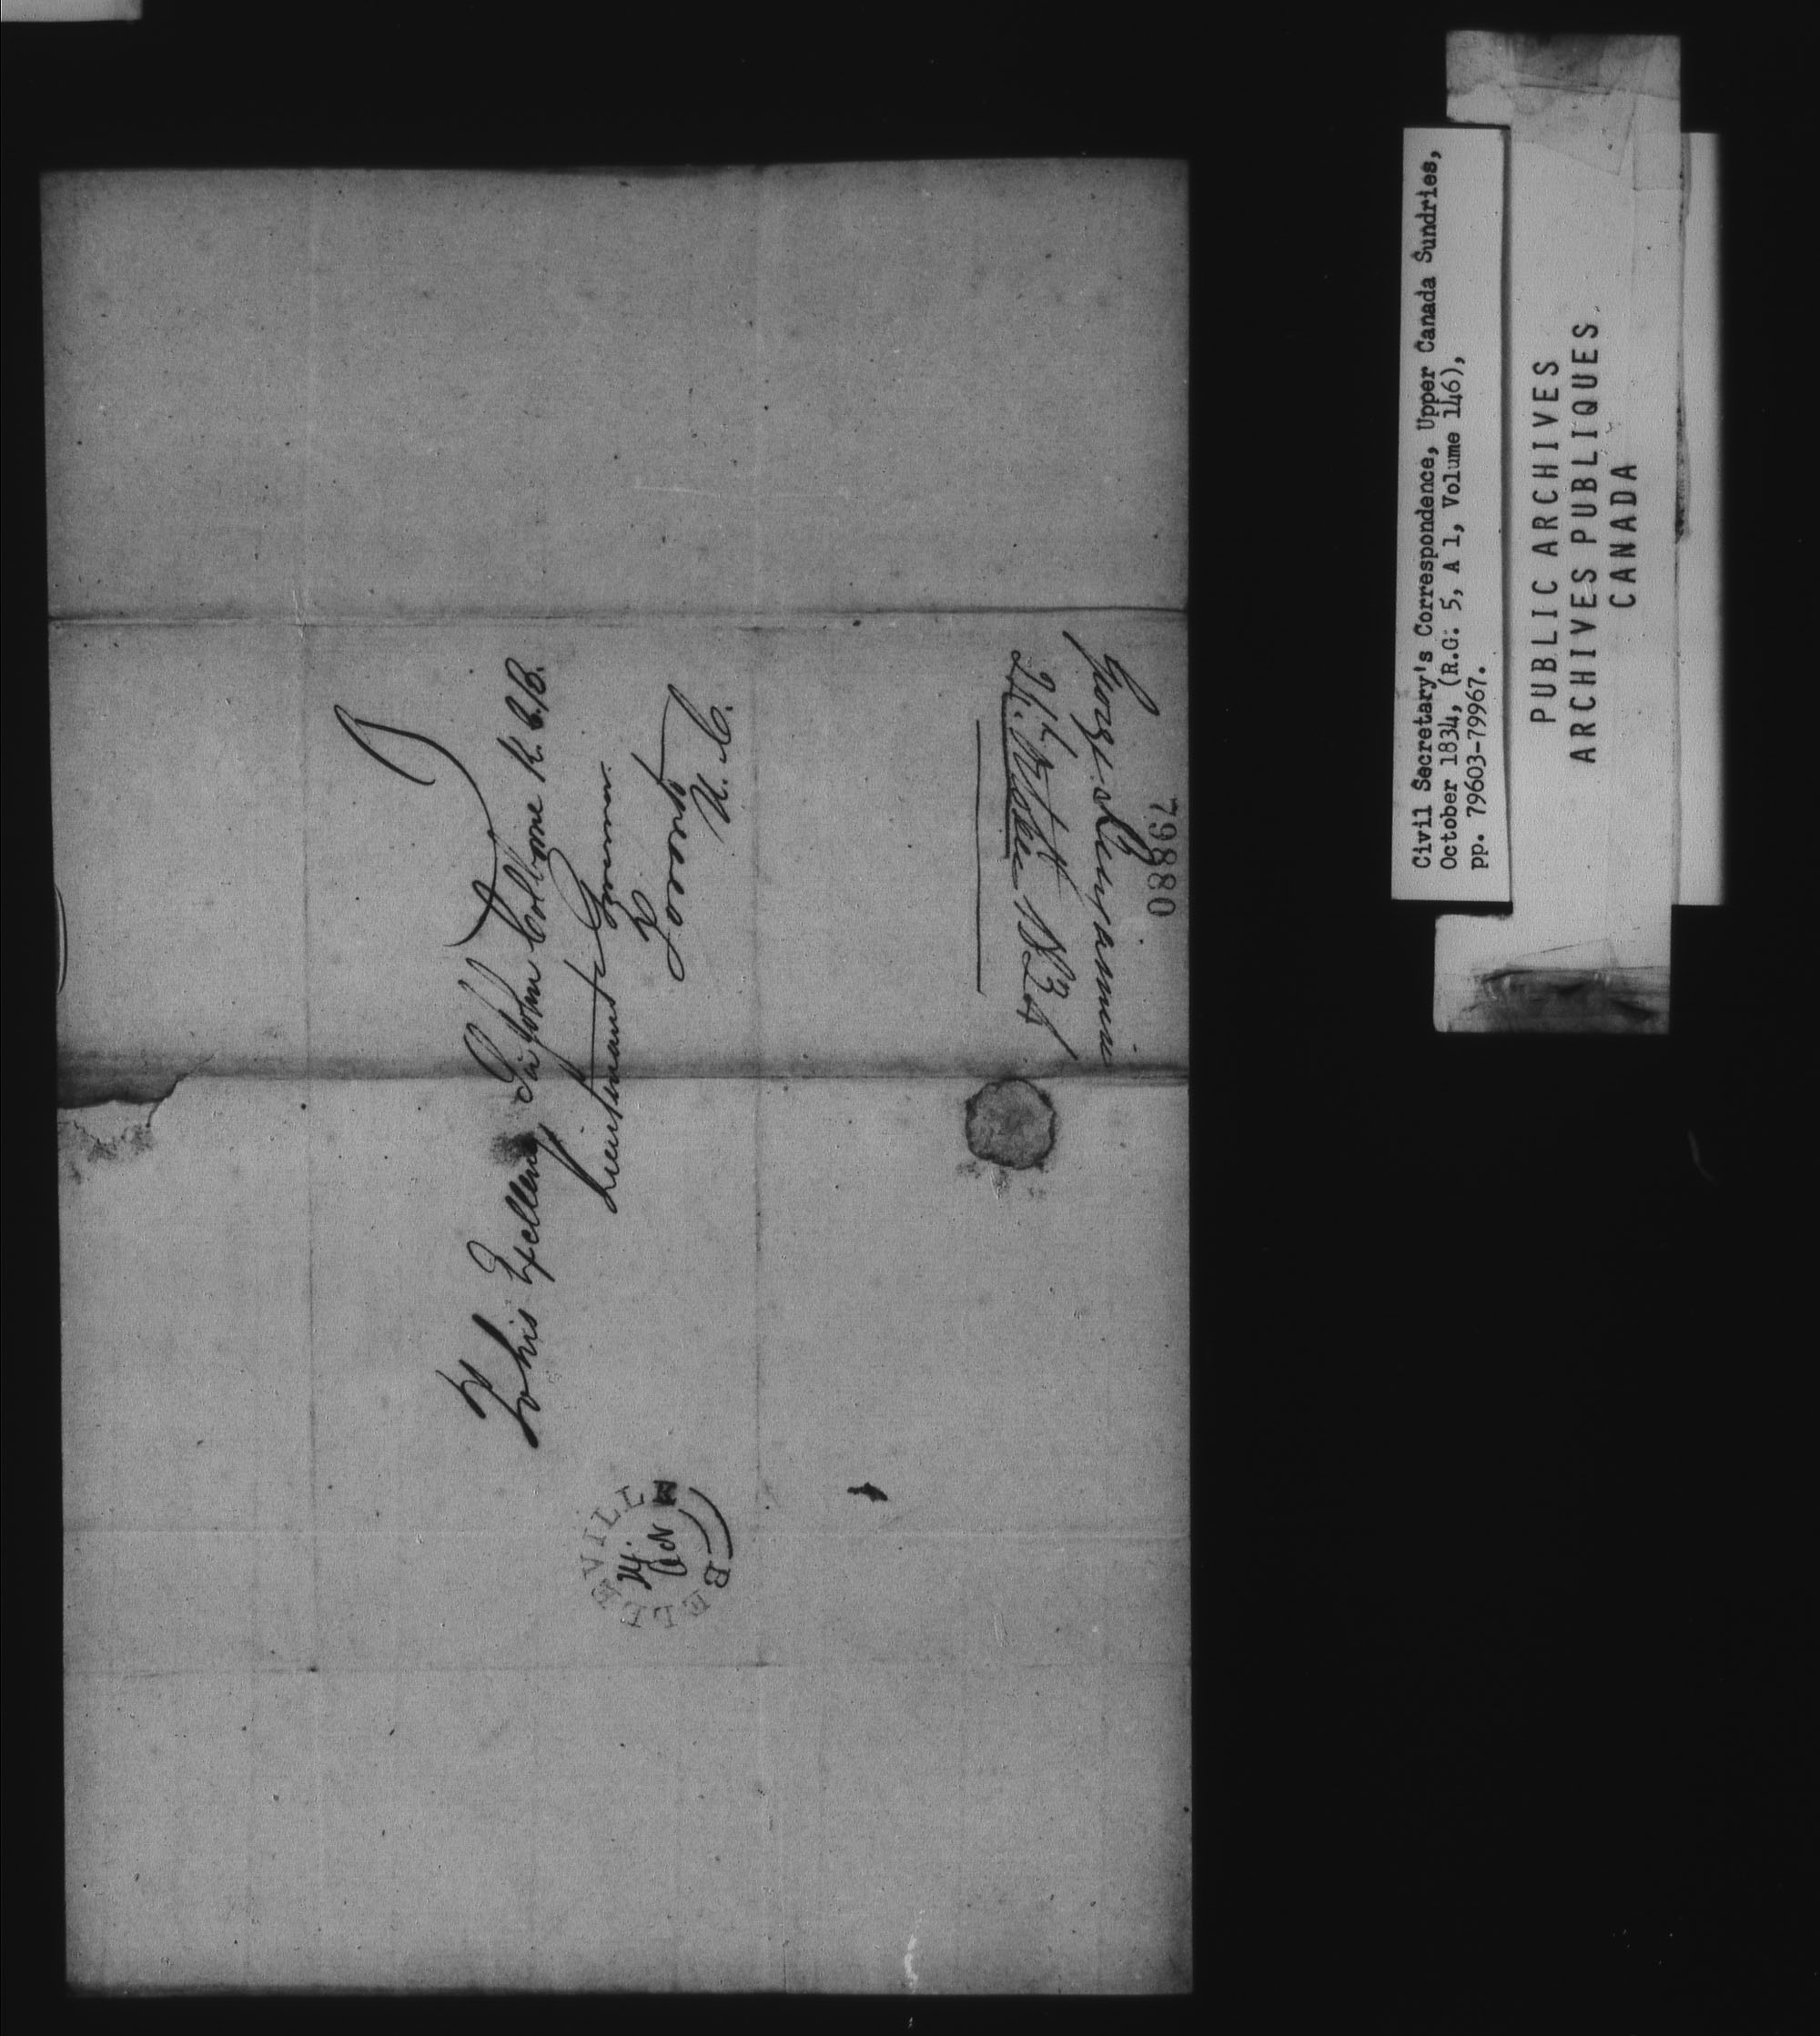 To his Excellency Sir John Colborne K.C.B.
Lieutenant Governor
Toronto
U.C.
BELLEVILLE
24
George Benjamin
24th October 1834
79880
Civil Secretary's Correspondence, Upper Canada Sundries,
October 1834, (R.G. 5, A 1, Volume 146),
pp. 79603-79967.
PUBLIC ARCHIVES
ARCHIVES PUBLIQUES
CANADA